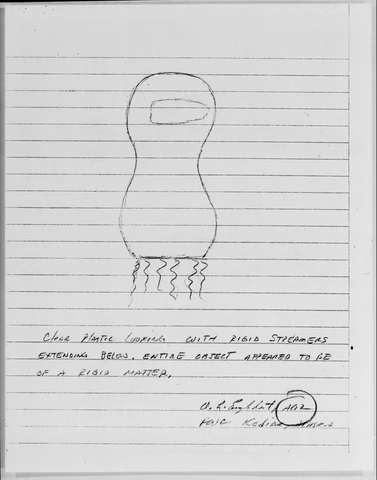 CLEAR PLASTIC LOOKING WITH RIGID STREAMERS
EXTENDING BELOW. ENTIRE OBJECT APPEARED TO BE
OF A RIGID MATTER.